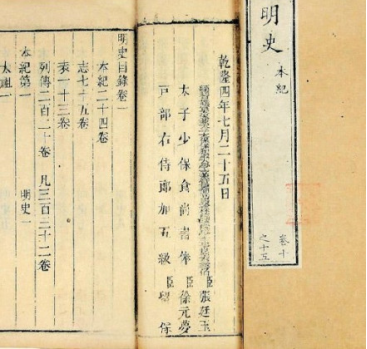 明史 本紀
卷十
之十五
乾隆四年七月二十五日
臣 張廷玉
太子少保食尚書俸 臣 徐元夢
戶部右侍郎加五級 臣 留保
明史目錄卷一
本紀二十四卷
志七十五卷
表一十三卷
列傳二百二十卷 凡三百三十二卷
本紀第一 明史一
太祖一